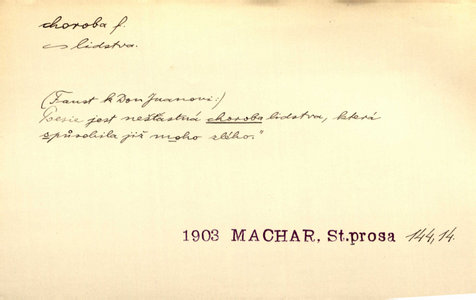 choroba f.
~ lidstva.
(Faust k Don Juanovi:)
Poesie jest nešťastná choroba lidstva, která
spůsobila již moho zlého."
1903 MACHAR, St.prosa 144,14.